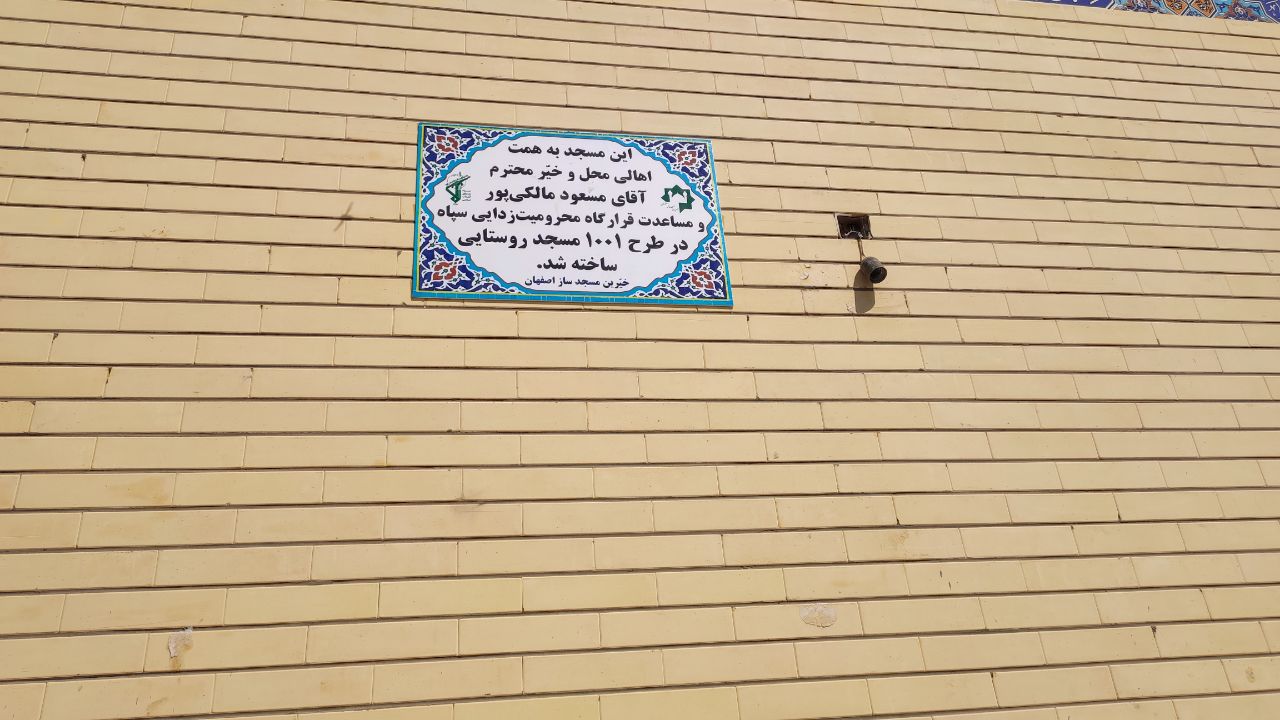 این مسجد به همت
اهالی محل و خیّر محترم
آقای مسعود مالکی‌پور
و مساعدت قرارگاه محرومیت‌زدایی سپاه
در طرح ۱۰۰۱ مسجد روستایی
ساخته شد.
خیّرین مسجد ساز اصفهان